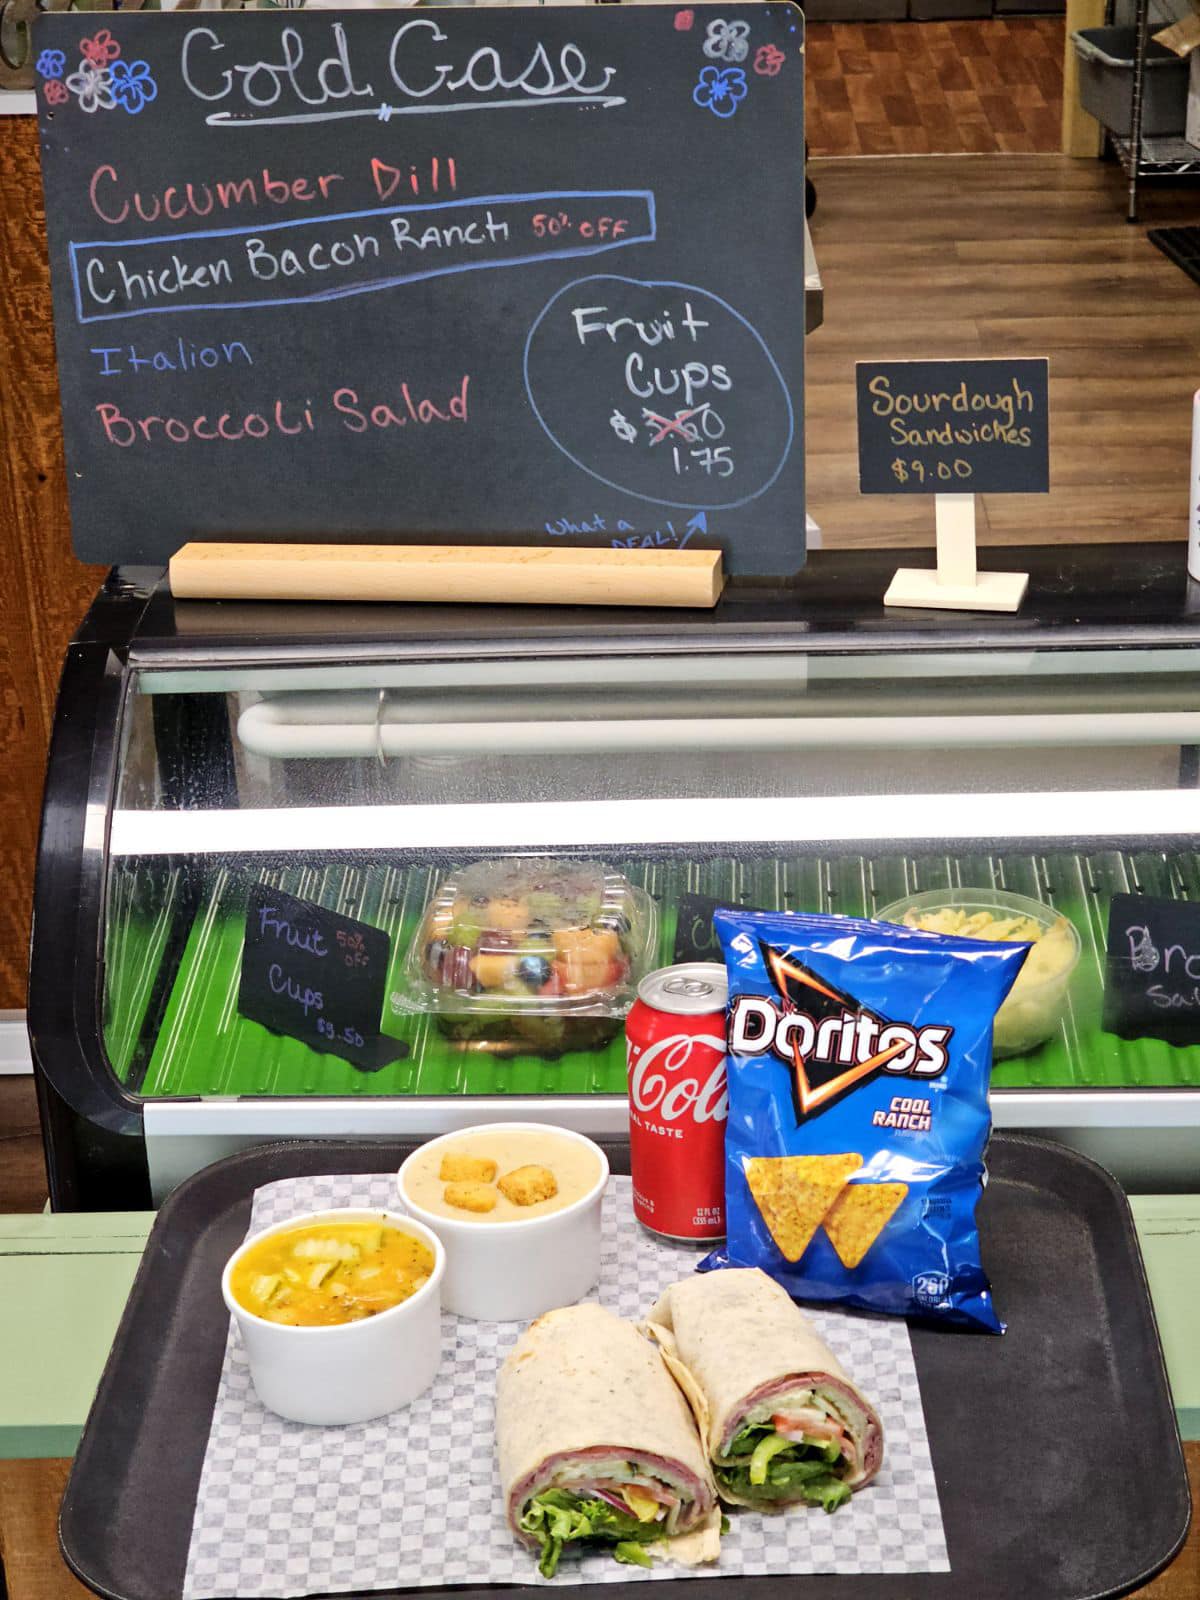 Cold Case
Cucumber Dill
Chicken Bacon Ranch 50% OFF
Italion
Broccoli Salad
Fruit
Cups
$3.50
1.75
What a
DEAL!
Sourdough
Sandwiches
$9.00
Fruit 50%
OFF
Cups
$3.50
Ch
Bro
Sal
Cola
AL TASTE
12 FL OZ
(355 mL)
Doritos
COOL
RANCH
260